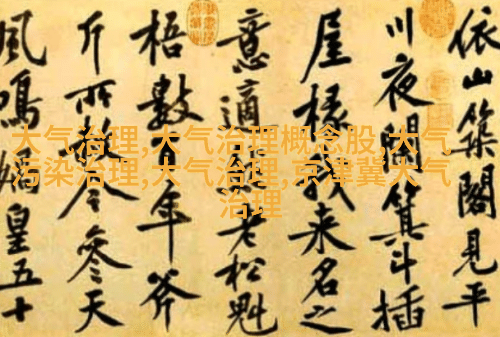 依山築閣見平
川夜闌箕斗插
屋椽我来名之
意適然老松魁
梧數百年斧
斤所赦今參天
風鳴媧皇五十
大气治理,大气治理概念股,大气
污染治理,大气治理,京津冀大气
治理